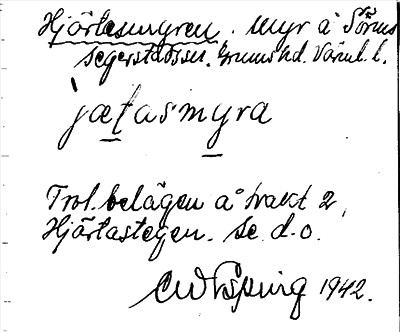 Hjärtasmyren. Myr å Södra
Segerstadsn. Grums hd. Värml. l.
jætasmyra
Trol. belägen å trakt 2,
Hjärtastegen. Se d.o.
1942.